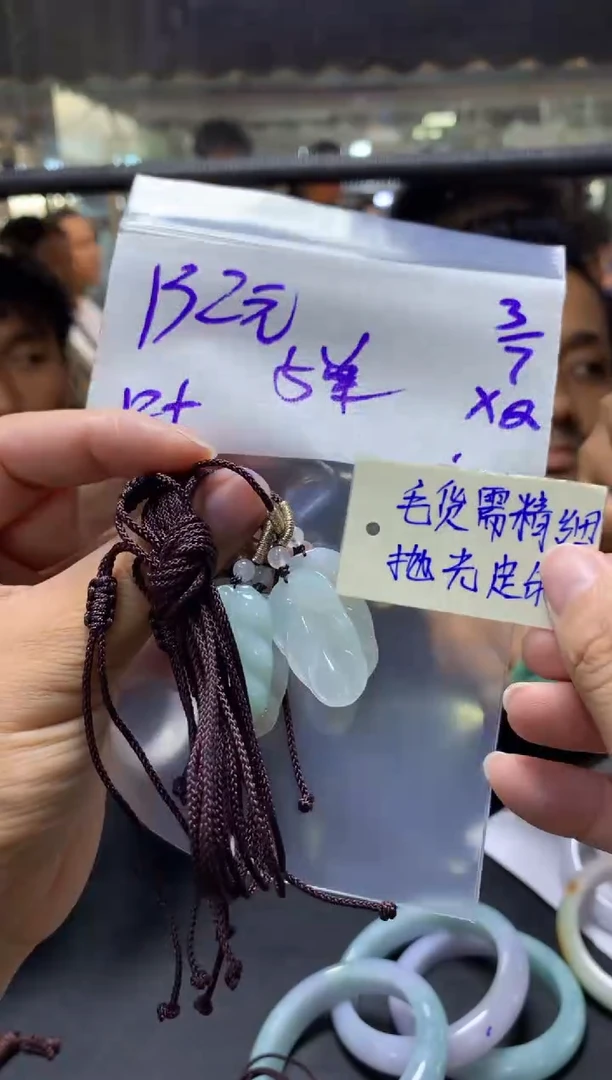 132元
5单
3/7
XQ
毛货需精细
抛光定